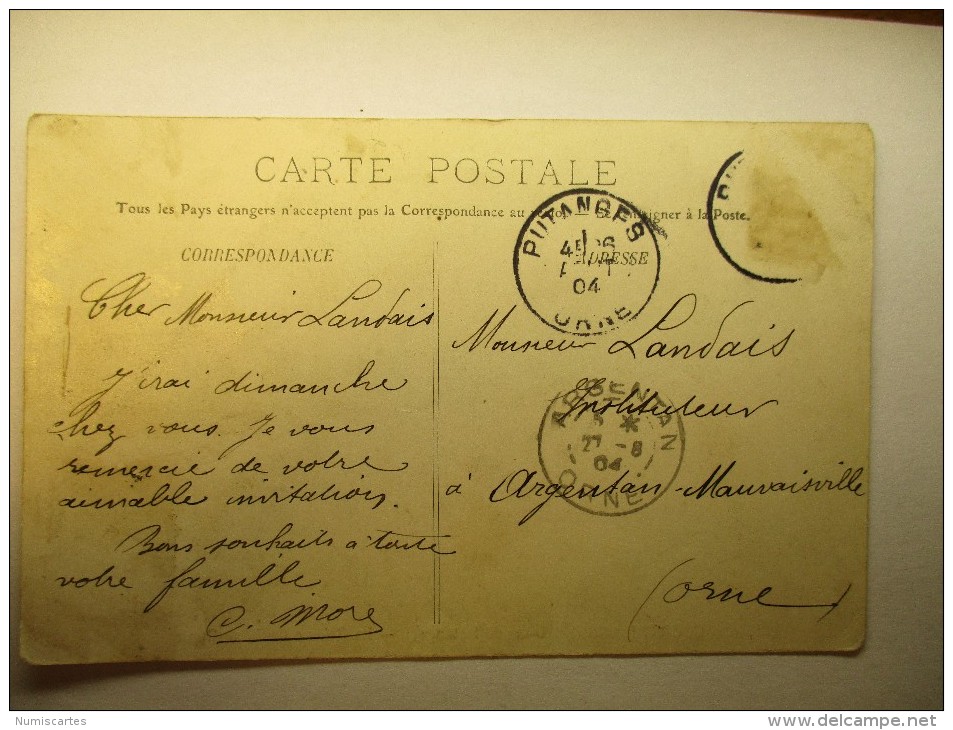 CARTE POSTALE
Tous les Pays étrangers n'acceptent pas la Correspondance au à la Poste.
CORRESPONDANCE
Cher Monsieur Landais
J'irai dimanche
chez vous. Je vous
remercie de votre
aimable invitation.
Bons souhaits à toute
votre famille
C. More
ADRESSE
Monsieur Landais
Instituteur
à Argentan-Mauvaisville
(Orne)
PUTANGES
04
ORNE
ARGENTAN
5 *
27 -8
04
ORNE
Numiscartes
www.delcampe.net